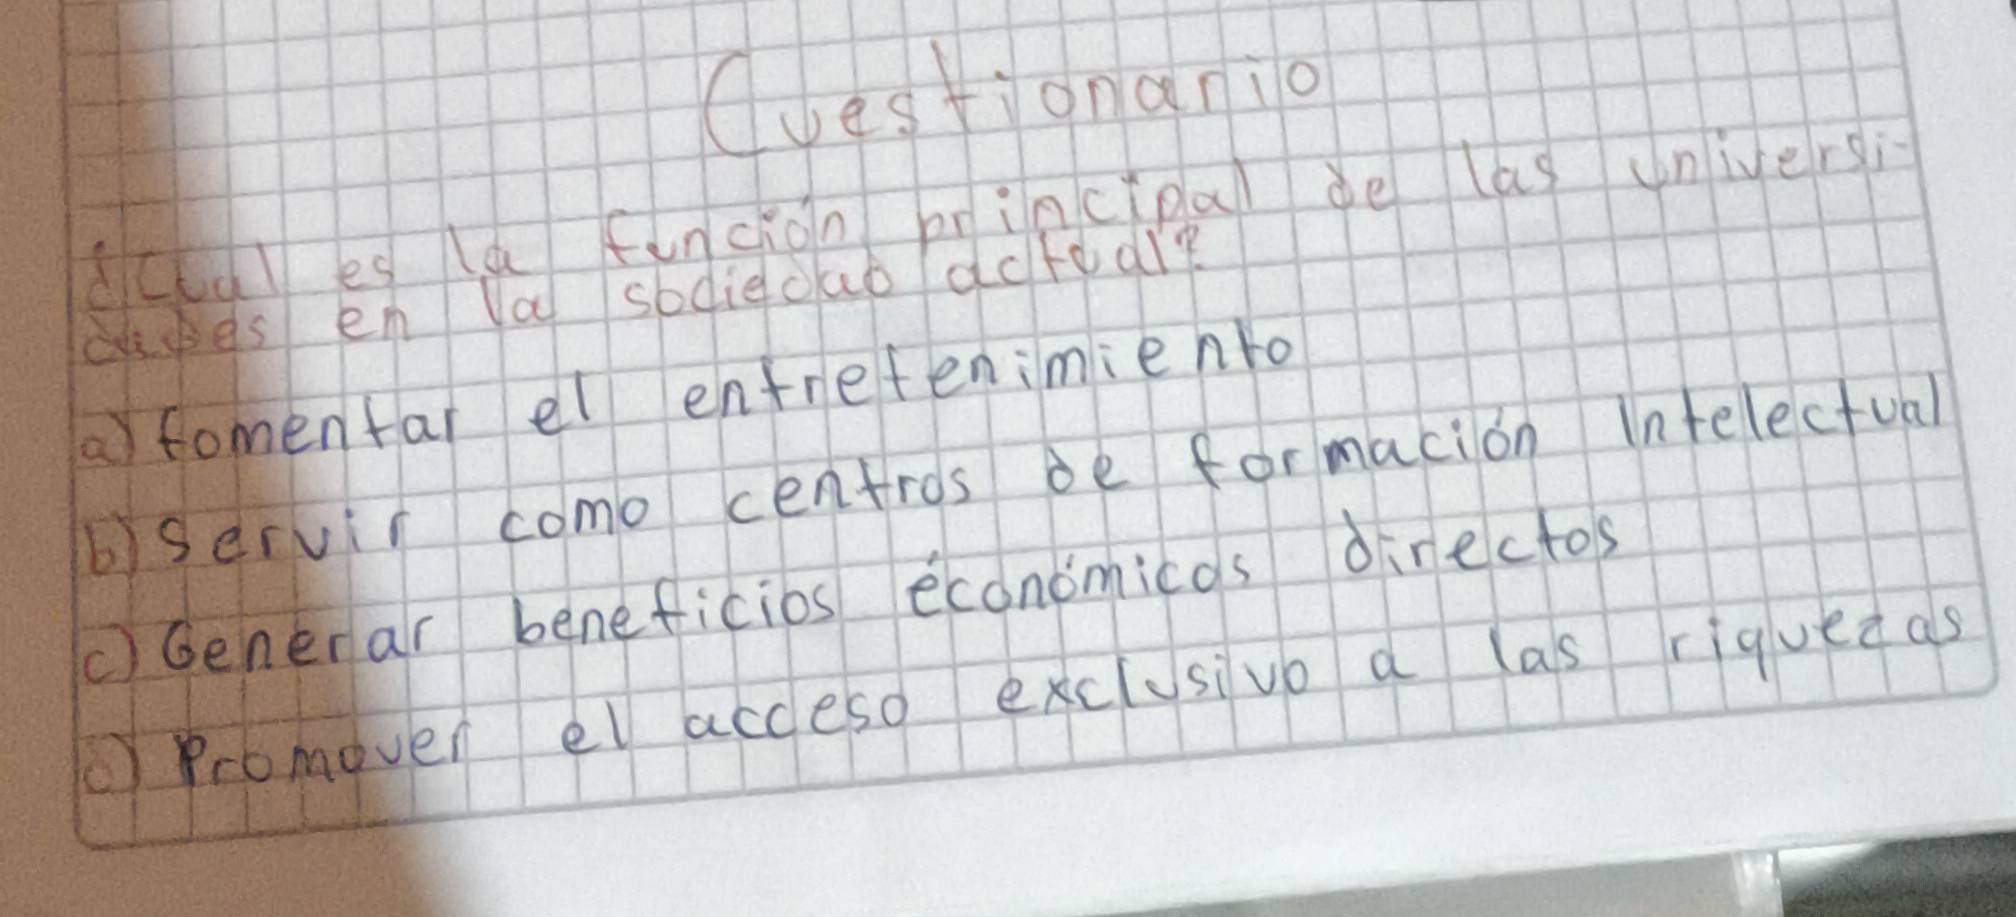 Cuestionario
¿Cual es la función principal de las universi-
dades en la sociedad actual?
a) fomentar el entretenimiento
b) servir como centros de formación Intelectual
c) Generar beneficios económicos directos
d) Promover el acceso exclusivo a las riquezas